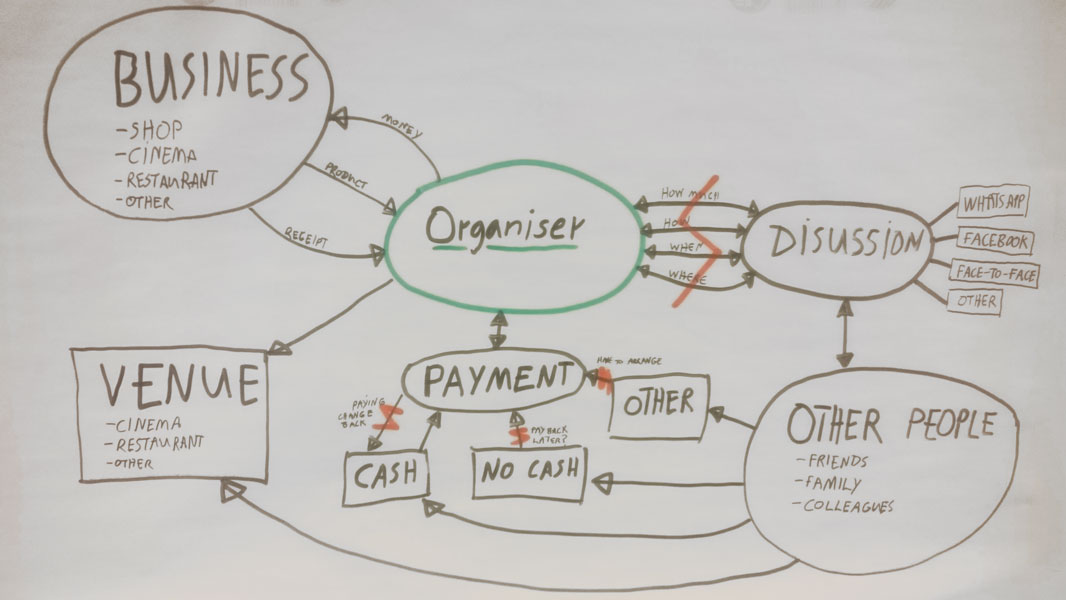 BUSINESS
-SHOP
-CINEMA
-RESTAURANT
-OTHER
MONEY
PRODUCT
RECEIPT
Organiser
HOW MUCH
HOW
WHEN
WHERE
DISUSSION
WHATSAPP
FACEBOOK
FACE-TO-FACE
OTHER
VENUE
-CINEMA
-RESTAURANT
-OTHER
PAYMENT
PAYING
CHANGE
BACK
CASH
PAY BACK
LATER?
NO CASH
HAVE TO ARRANGE
OTHER
OTHER PEOPLE
-FRIENDS
-FAMILY
-COLLEAGUES